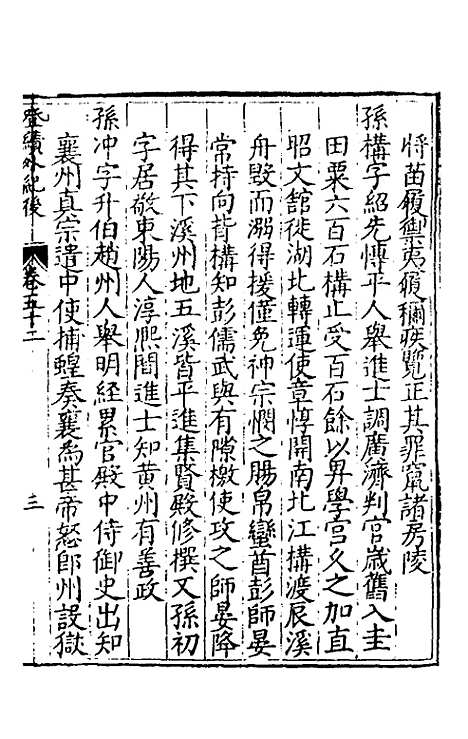 將苗履禦夷獠稱疾覽正其罪竄諸房陵
孫構字紹先博平人舉進士調廣濟判官歲舊入圭
田粟六百石構止受百石餘以畀學宮久之加直
昭文舘徙湖北轉運使章惇開南北江構渡辰溪
舟毀而溺得援僅免神宗憫之賜帛蠻酋彭師晏
常持向背構知彭儒武與有隙檄使攻之師晏降
得其下溪州地五溪皆平進集賢殿修撰又孫初
字居敬東陽人淳熙間進士知黃州有善政
孫冲字升伯趙州人舉明經累官殿中侍御史出知
襄州真宗遣中使捕蝗奏襄為甚帝怒郎州設獄
卷五十二
三